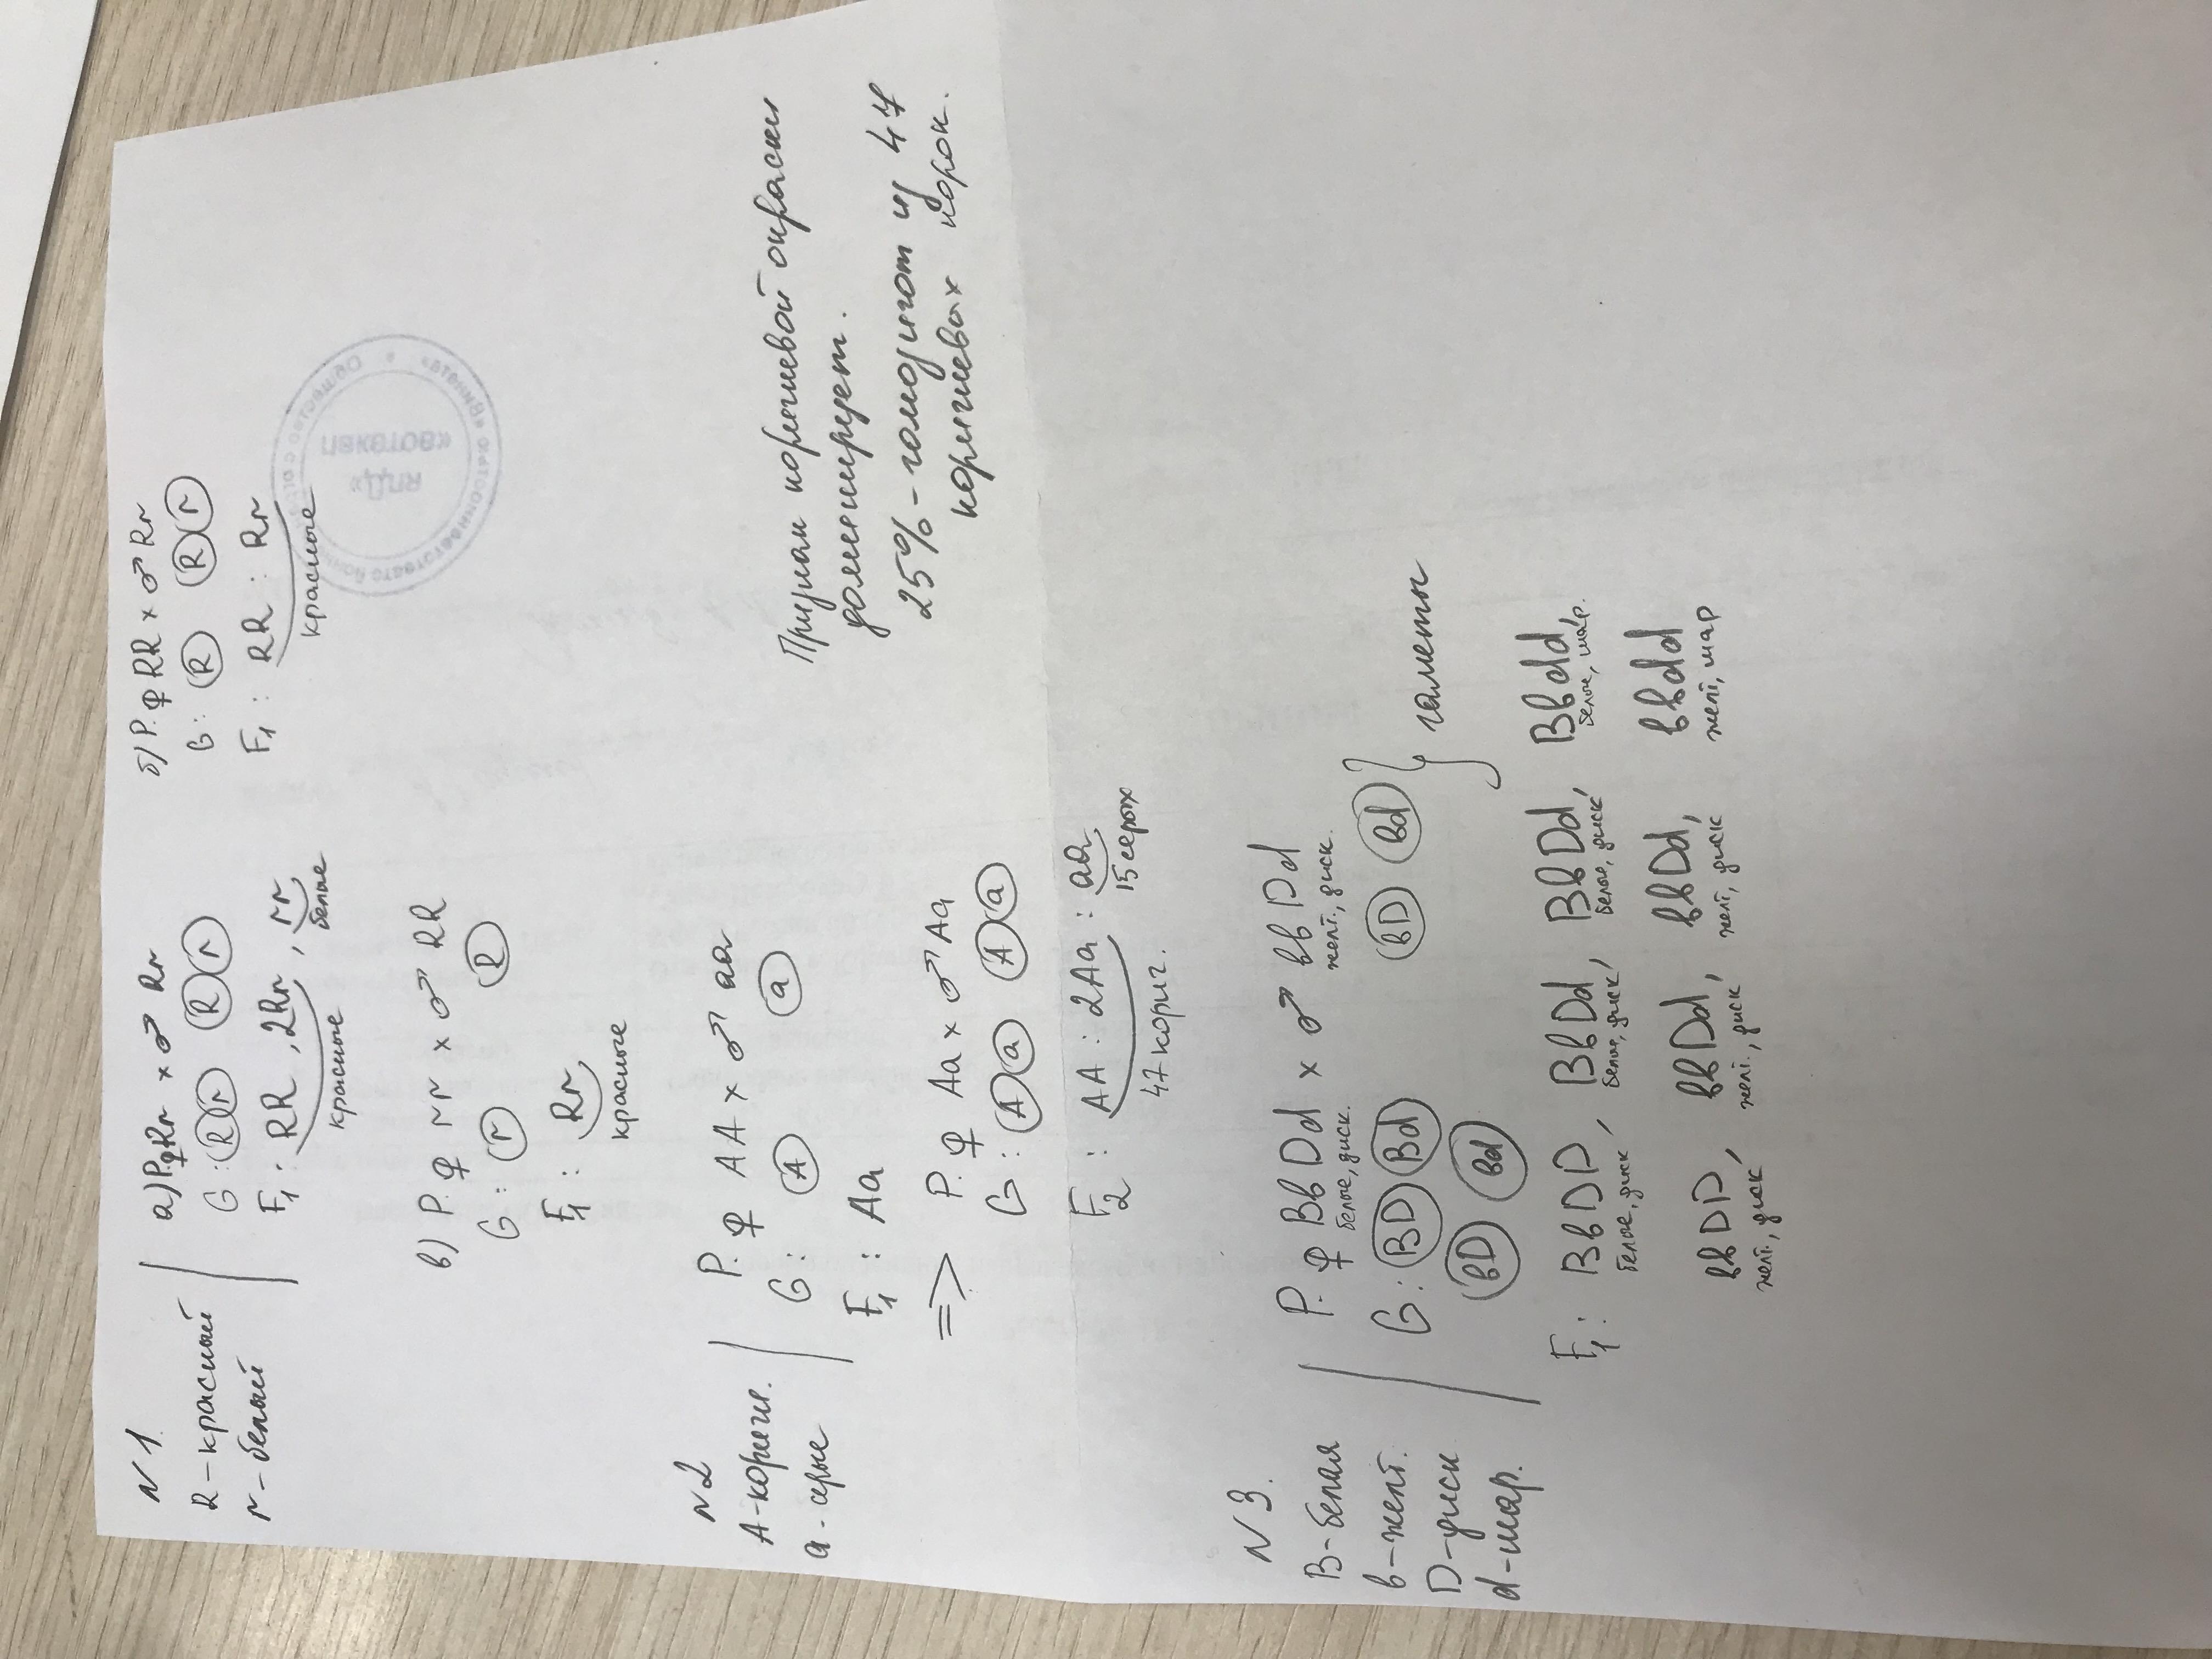 N 1
R - красный
r - белый
а) P. ♀ Rr × ♂ Rr
G: R r R r
F₁: RR, 2Rr, rr
красные белые
б) P. ♀ RR × ♂ Rr
G: R R r
F₁: RR : Rr
красные
в) P. ♀ rr × ♂ RR
G: r R
F₁: Rr
красные
N 2
A - коричн.
a - серые
P. ♀ AA × ♂ aa
G: A a
F₁: Aa
=> P. ♀ Aa × ♂ Aa
G: A a A a
F₂: AA : 2Aa : aa
47 кориг. 15 серых
Признак коричневой окраски
доминирует.
25% - гомозигот из 47
коричневых норок.
N 3.
B - белая
b - желт.
D - диск
d - шар.
P. ♀ BbDd × ♂ bbDd
белые, диск. желт., диск.
G: BD Bd bD bd
bD bd } гаметы
F₁: BbDD, BbDd, BbDd, Bbdd,
белые, диск белые, диск белые, диск белые, шар.
bbDD, bbDd, bbDd, bbdd
желт., диск желт., диск желт, диск желт, шар
«ЯПД»
«Вотакеп
Общество с